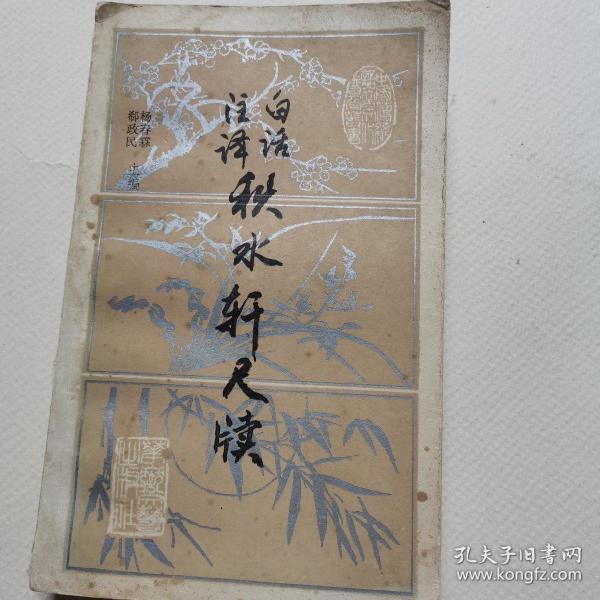 白话
注译
秋水轩尺牍
杨春霖
郗政民
主编
孔夫子旧书网
www.kongfz.com